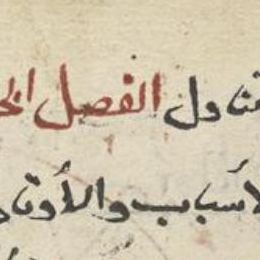 تناول الفصل الخ
لأسباب والأوتا